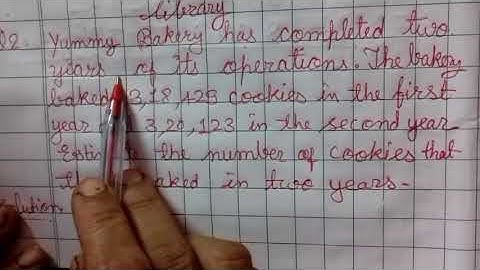 library
Q2. Yummy Bakery has completed two
years of its operations. The bakery
baked 3,18,125 cookies in the first
year 3,29,123 in the second year
the number of cookies that
in two years.
Solution